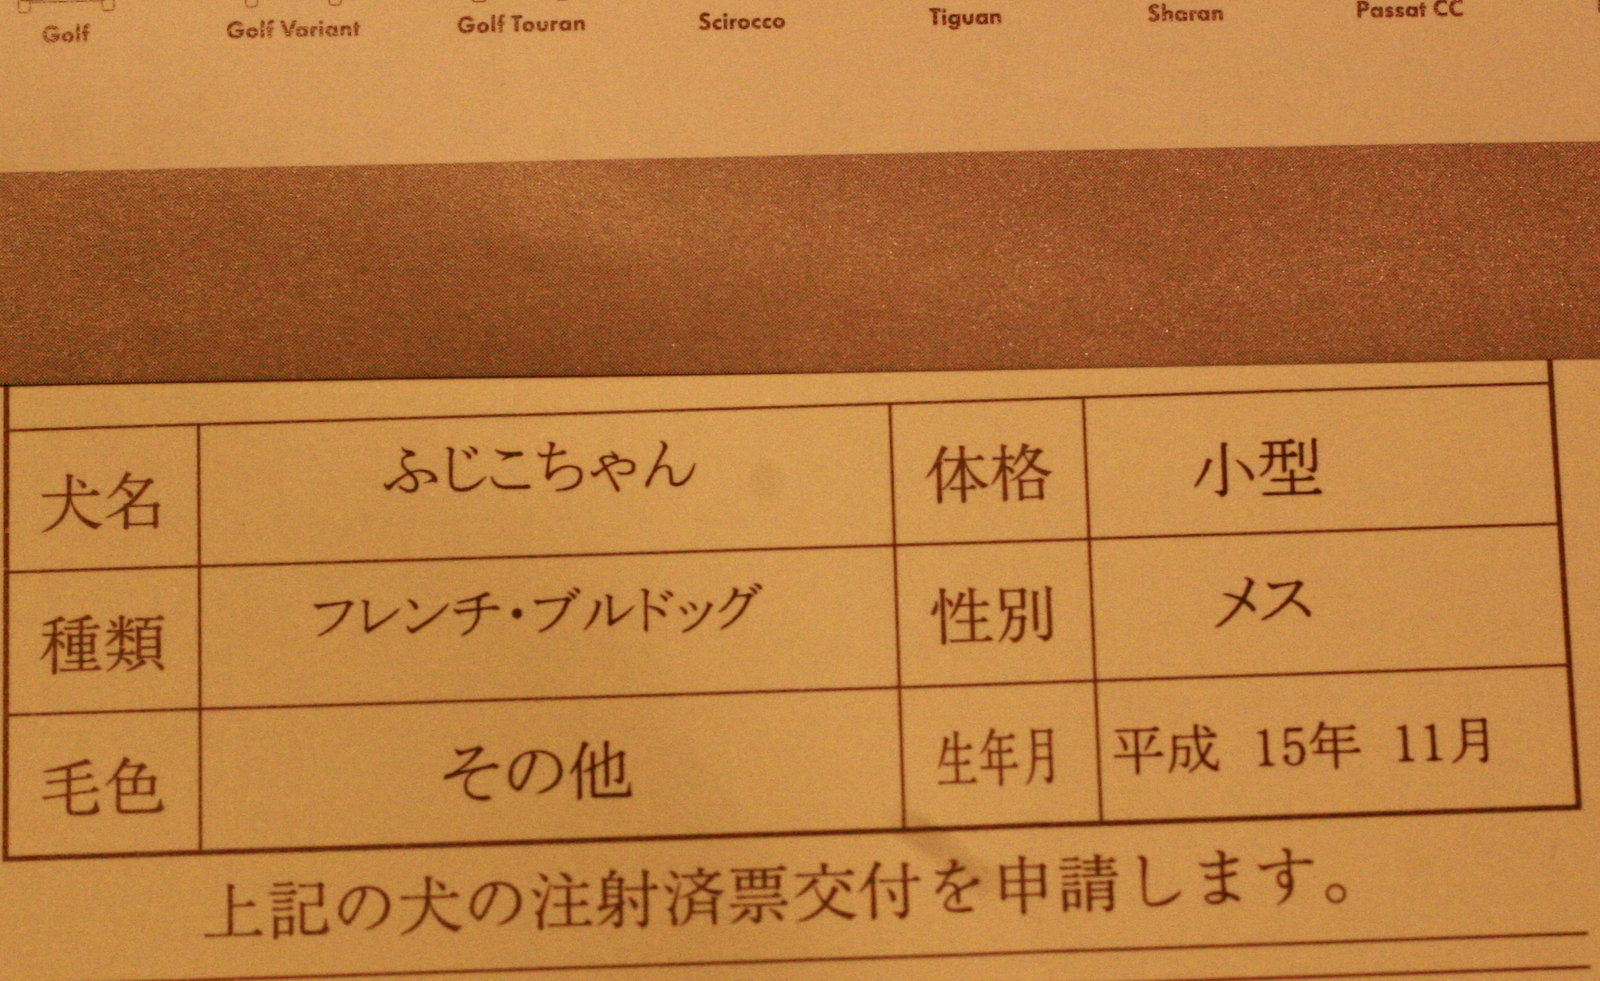 Golf Golf Variant Golf Touran Scirocco Tiguan Sharan Passat CC
犬名 ふじこちゃん 体格 小型
種類 フレンチ・ブルドッグ 性別 メス
毛色 その他 生年月 平成 15年 11月
上記の犬の注射済票交付を申請します。